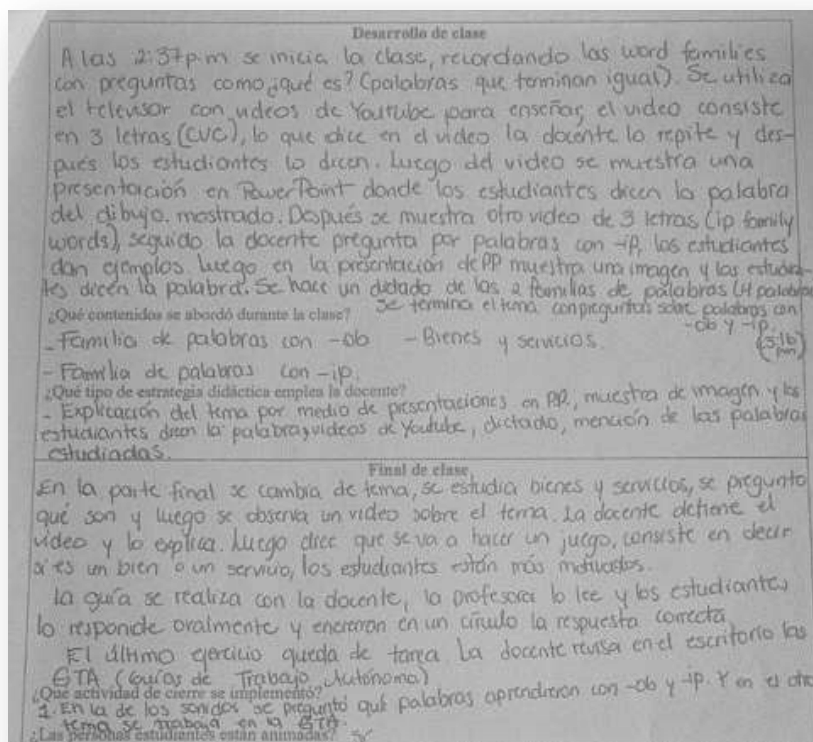 Desarrollo de clase
A las 2:37 p.m se inicia la clase, recordando las word families
con preguntas como ¿qué es? (palabras que terminan igual). Se utiliza
el televisor con videos de Youtube para enseñar, el video consiste
en 3 letras (CVC), lo que dice en el video la docente lo repite y des-
pués los estudiantes lo dicen. Luego del video se muestra una
presentación en PowerPoint donde los estudiantes dicen la palabra
del dibujo mostrado. Después se muestra otro video de 3 letras (ip family
words), seguido la docente pregunta por palabras con -ip, los estudiantes
dan ejemplos luego en la presentación de PP muestra una imagen y los estudian-
tes dicen la palabra. Se hace un dictado de las 2 familias de palabras (4 palabras
Se termina el tema con preguntas sobre palabras con
¿Qué contenidos se abordó durante la clase?
-ob y -ip.
- Familia de palabras con -ob - Bienes y servicios.
(3:16 pm)
- Familia de palabras con -ip.
¿Qué tipo de estrategia didáctica emplea la docente?
- Explicación del tema por medio de presentaciones en PP, muestra de imagen y los
estudiantes dicen la palabra, videos de Youtube, dictado, mención de las palabras
estudiadas.
Final de clase
En la parte final se cambia de tema, se estudia bienes y servicios, se pregunto
qué son y luego se observa un video sobre el tema. La docente detiene el
video y lo explica. Luego dice que se va a hacer un juego, consiste en decir
si es un bien o un servicio, los estudiantes están más motivados.
La guía se realiza con la docente, la profesora lo lee y los estudiantes
lo responde oralmente y encierran en un círculo la respuesta correcta
El último ejercicio queda de tarea. La docente revisa en el escritorio las
GTA (Guías de Trabajo Autónomo)
¿Qué actividad de cierre se implementó?
1. En la de los sonidos se preguntó qué palabras aprendieron con -ob y -ip. Y en el otro
tema se trabaja en la GTA.
¿Las personas estudiantes están animadas?